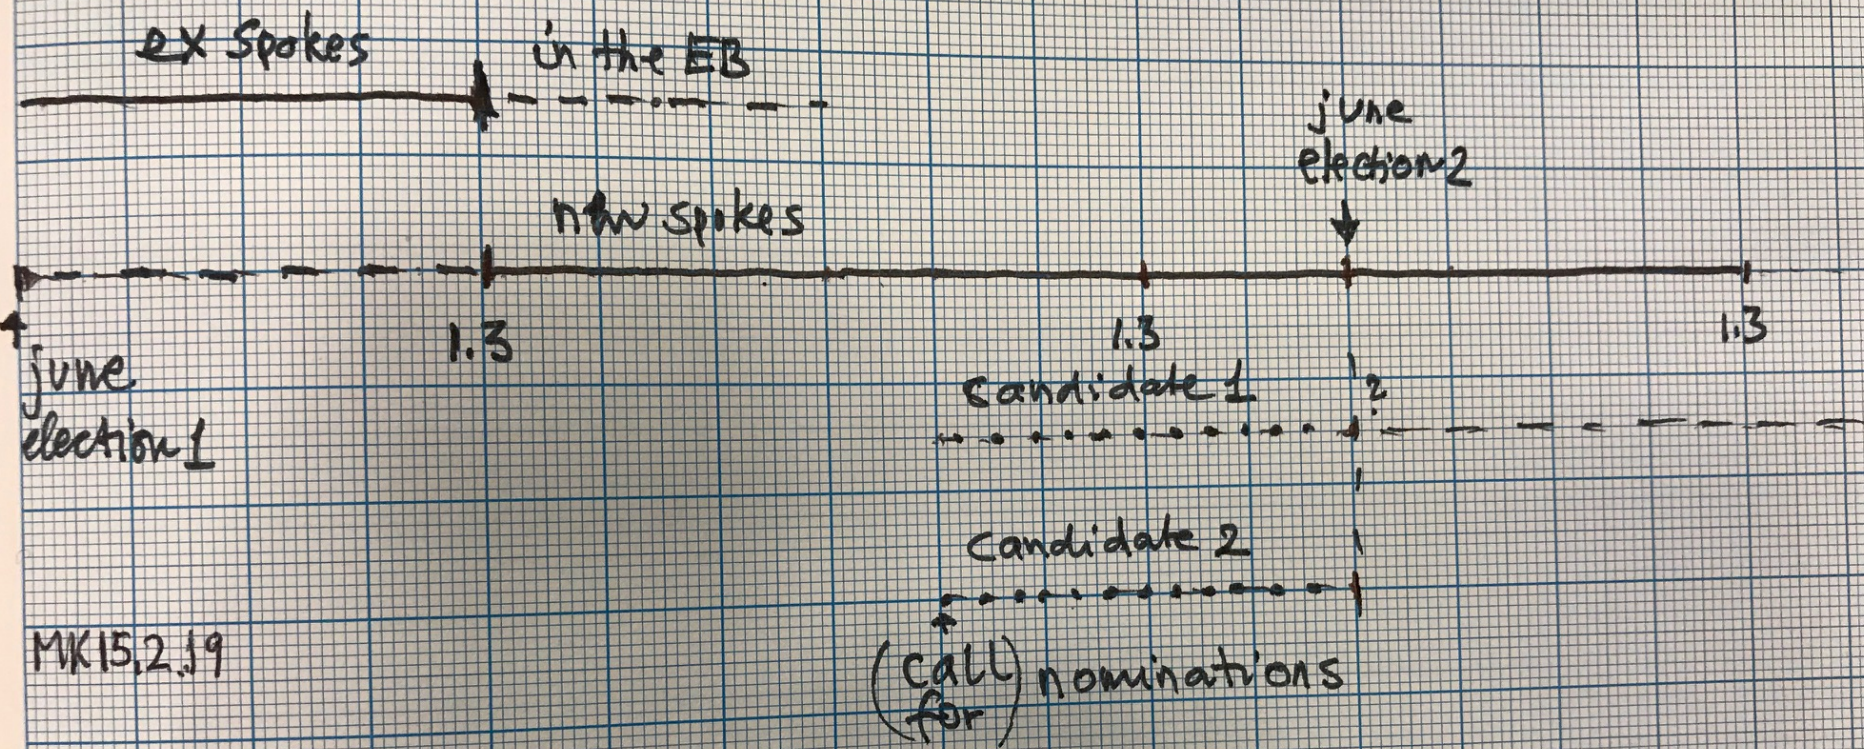 ex spokes
in the EB
june
election2
new spokes
1.3
1.3
1.3
june
election1
candidate 1
?
candidate 2
MK15.2.19
(call for) nominations